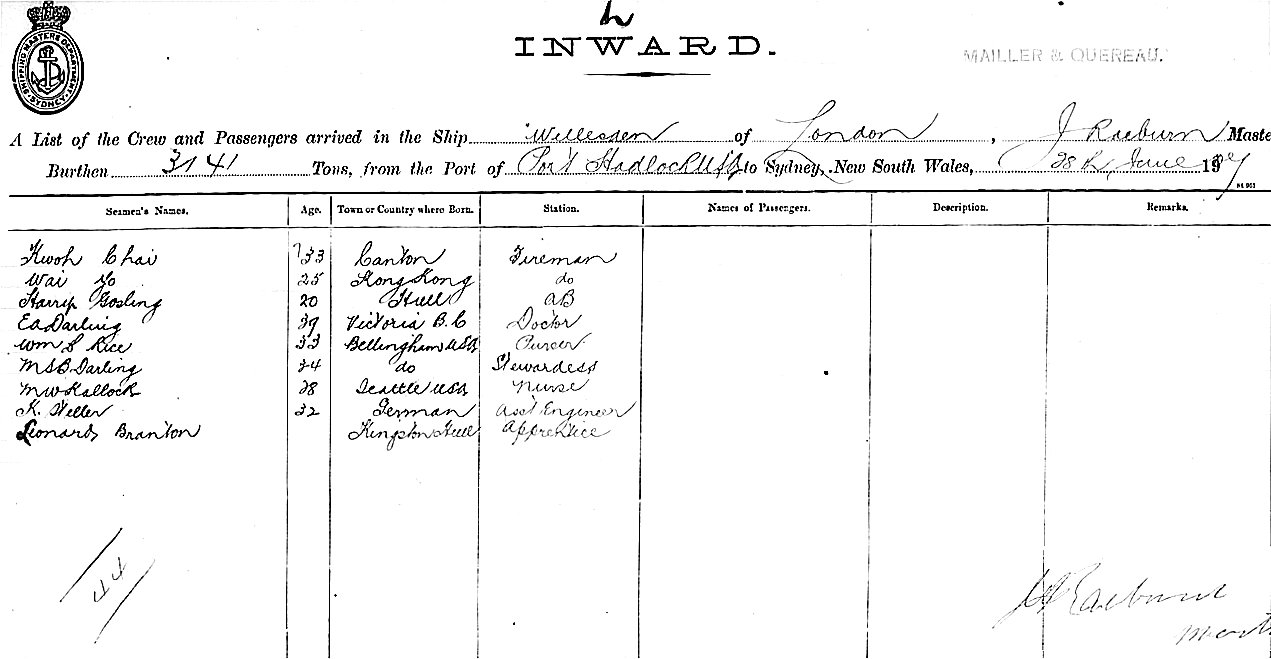 INWARD.
MAILLER & QUEREAU.
SHIPPING MASTERS DEPARTMENT SYDNEY
A List of the Crew and Passengers arrived in the Ship Willesden of London, J Raeburn Maste
Burthen 3141 Tons, from the Port of Port Hadlock USA to Sydney, New South Wales, 28th June 19
Seamen's Names. Age. Town or Country where Born. Station. Names of Passengers. Description. Remarks.
Kwoh Chai 33 Canton Fireman
Wai Yo 25 Hong Kong do
Harry Gosling 20 Hull AB
EA Darling 39 Victoria B.C Doctor
Wm S Rice 33 Bellingham USA Purser
MSB Darling 24 do Stewardess
MW Kallock 28 Seattle USA Nurse
K. Heller 32 German Asst Engineer
Leonard Branton Kingston Hull Apprentice
44
Raeburn